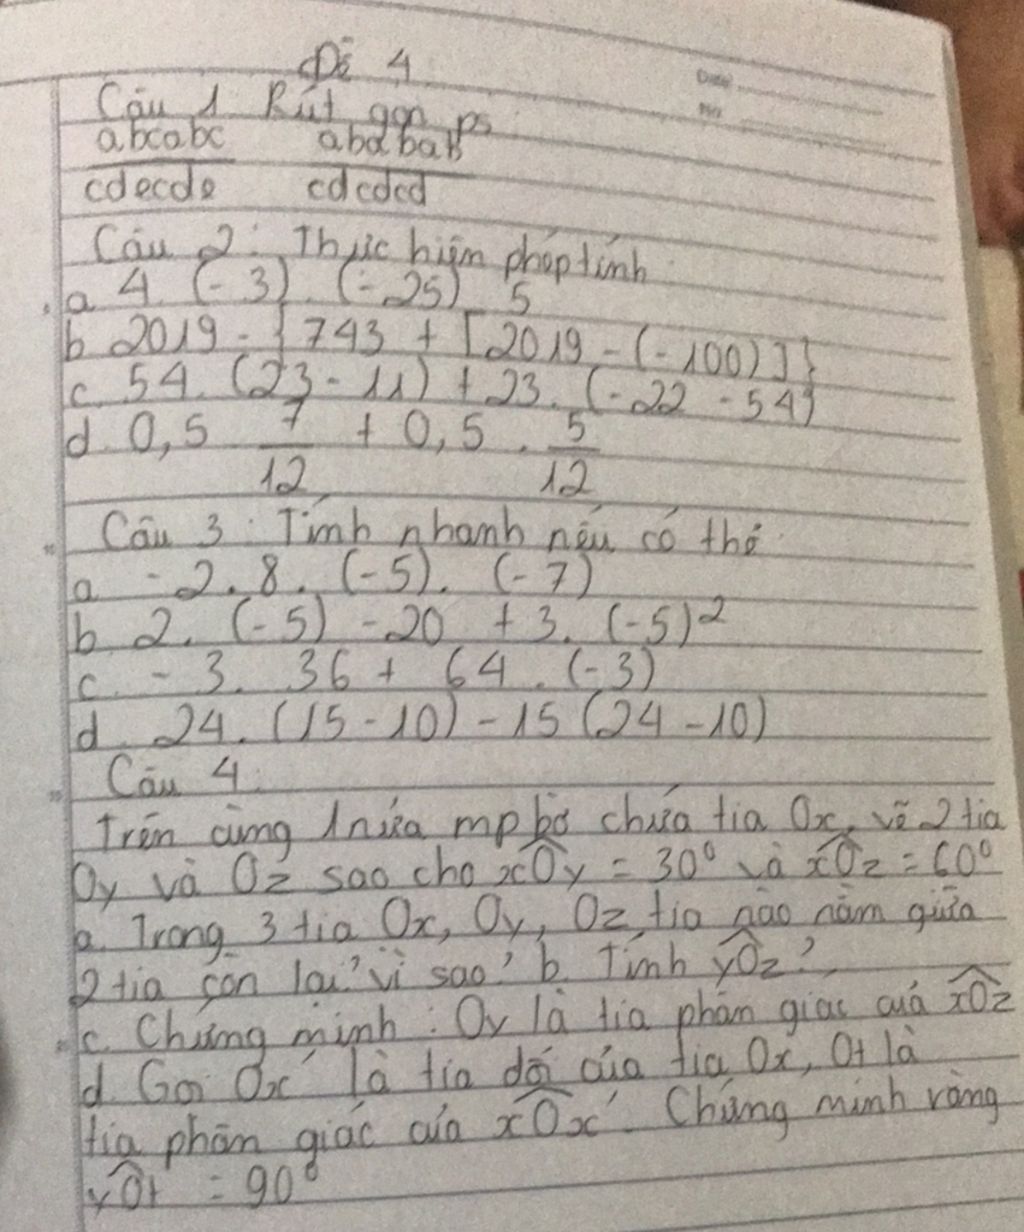 Đề 4
Date
No
Câu 1 Rút gọn ps
abcabc ababab
cdecde cdcdcd
Câu 2: Thực hiện phép tính
a 4. (-3). (-25) 5
b 2019 - {743 + [2019 - (-100)]}
c. 54. (23 - 11) + 23. (-22 - 54)
d. 0,5 7 + 0,5 . 5
12 12
Câu 3: Tính nhanh nếu có thể
a -2. 8. (-5). (-7)
b 2. (-5) - 20 + 3. (-5)²
c. -3. 36 + 64. (-3)
d. 24. (15 - 10) - 15 (24 - 10)
Câu 4.
Trên cùng 1 nửa mp bờ chứa tia Ox, vẽ 2 tia
Oy và Oz sao cho xOy = 30⁰ và xOz = 60⁰
a. Trong 3 tia Ox, Oy, Oz, tia nào nằm giữa
2 tia còn lại? vì sao? b. Tính yOz?
c. Chứng minh: Oy là tia phân giác của xOz
d. Gọi Ox' là tia đối của tia Ox, Ot là
tia phân giác của xOx'. Chứng minh rằng
yOt = 90⁰